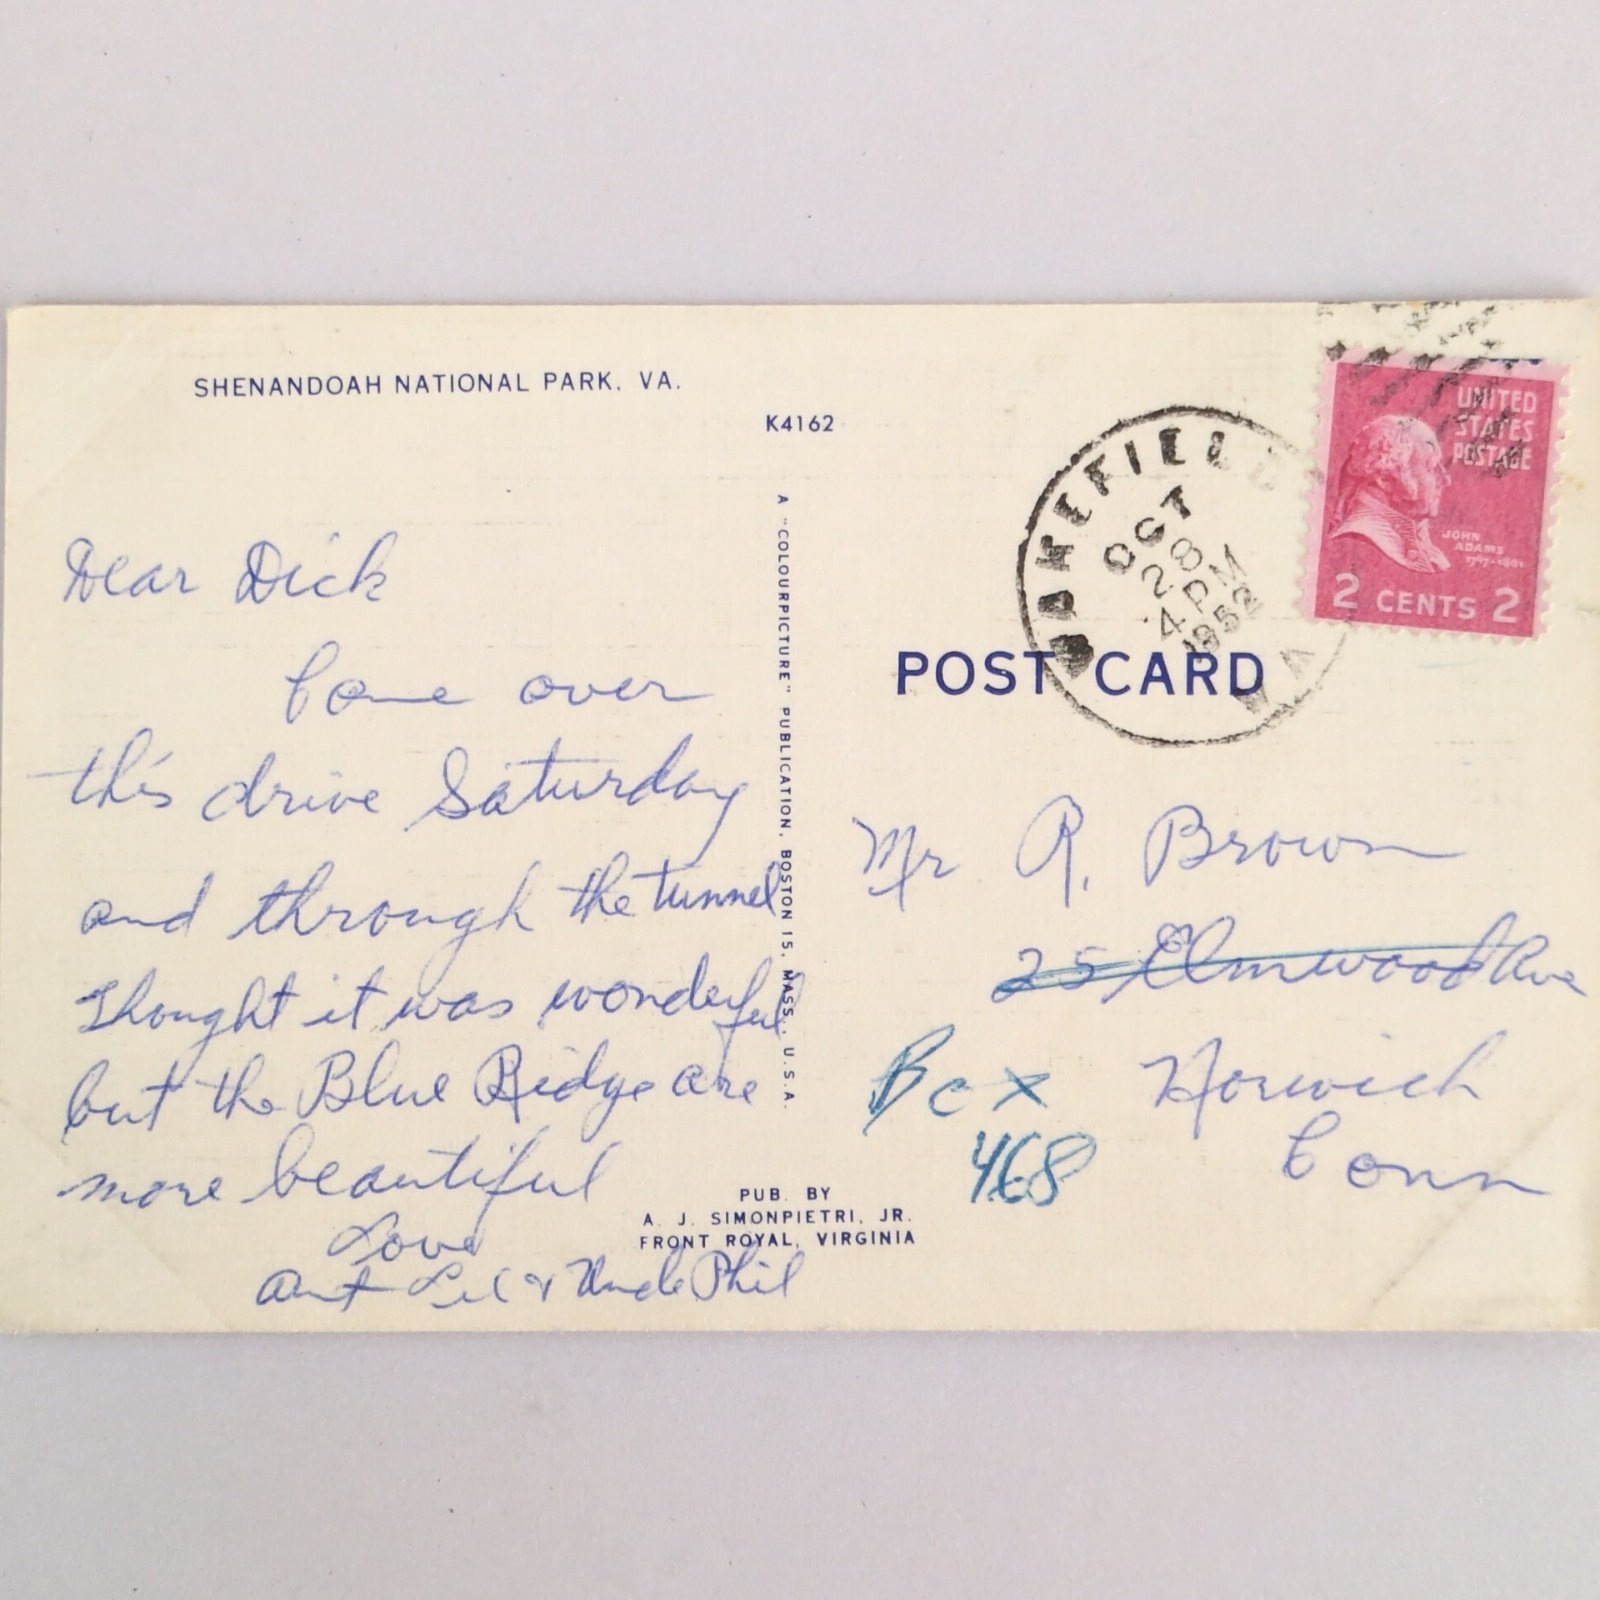 SHENANDOAH NATIONAL PARK, VA.
K4162
Dear Dick
Come over
this drive Saturday
and through the tunnel
Thought it was wonderful
but the Blue Ridge are
more beautiful
Love
Aunt Lil & Uncle Phil
A "COLOURPICTURE" PUBLICATION, BOSTON 15, MASS., U.S.A.
PUB. BY
A. J. SIMONPIETRI, JR.
FRONT ROYAL, VIRGINIA
WAKEFIELD
OCT
28
4 PM
VA
UNITED
STATES
POSTAGE
JOHN
ADAMS
1797-1801
2 CENTS 2
POST CARD
Mr R. Brown
25 Elmwood Ave
Box Norwich
468 Conn